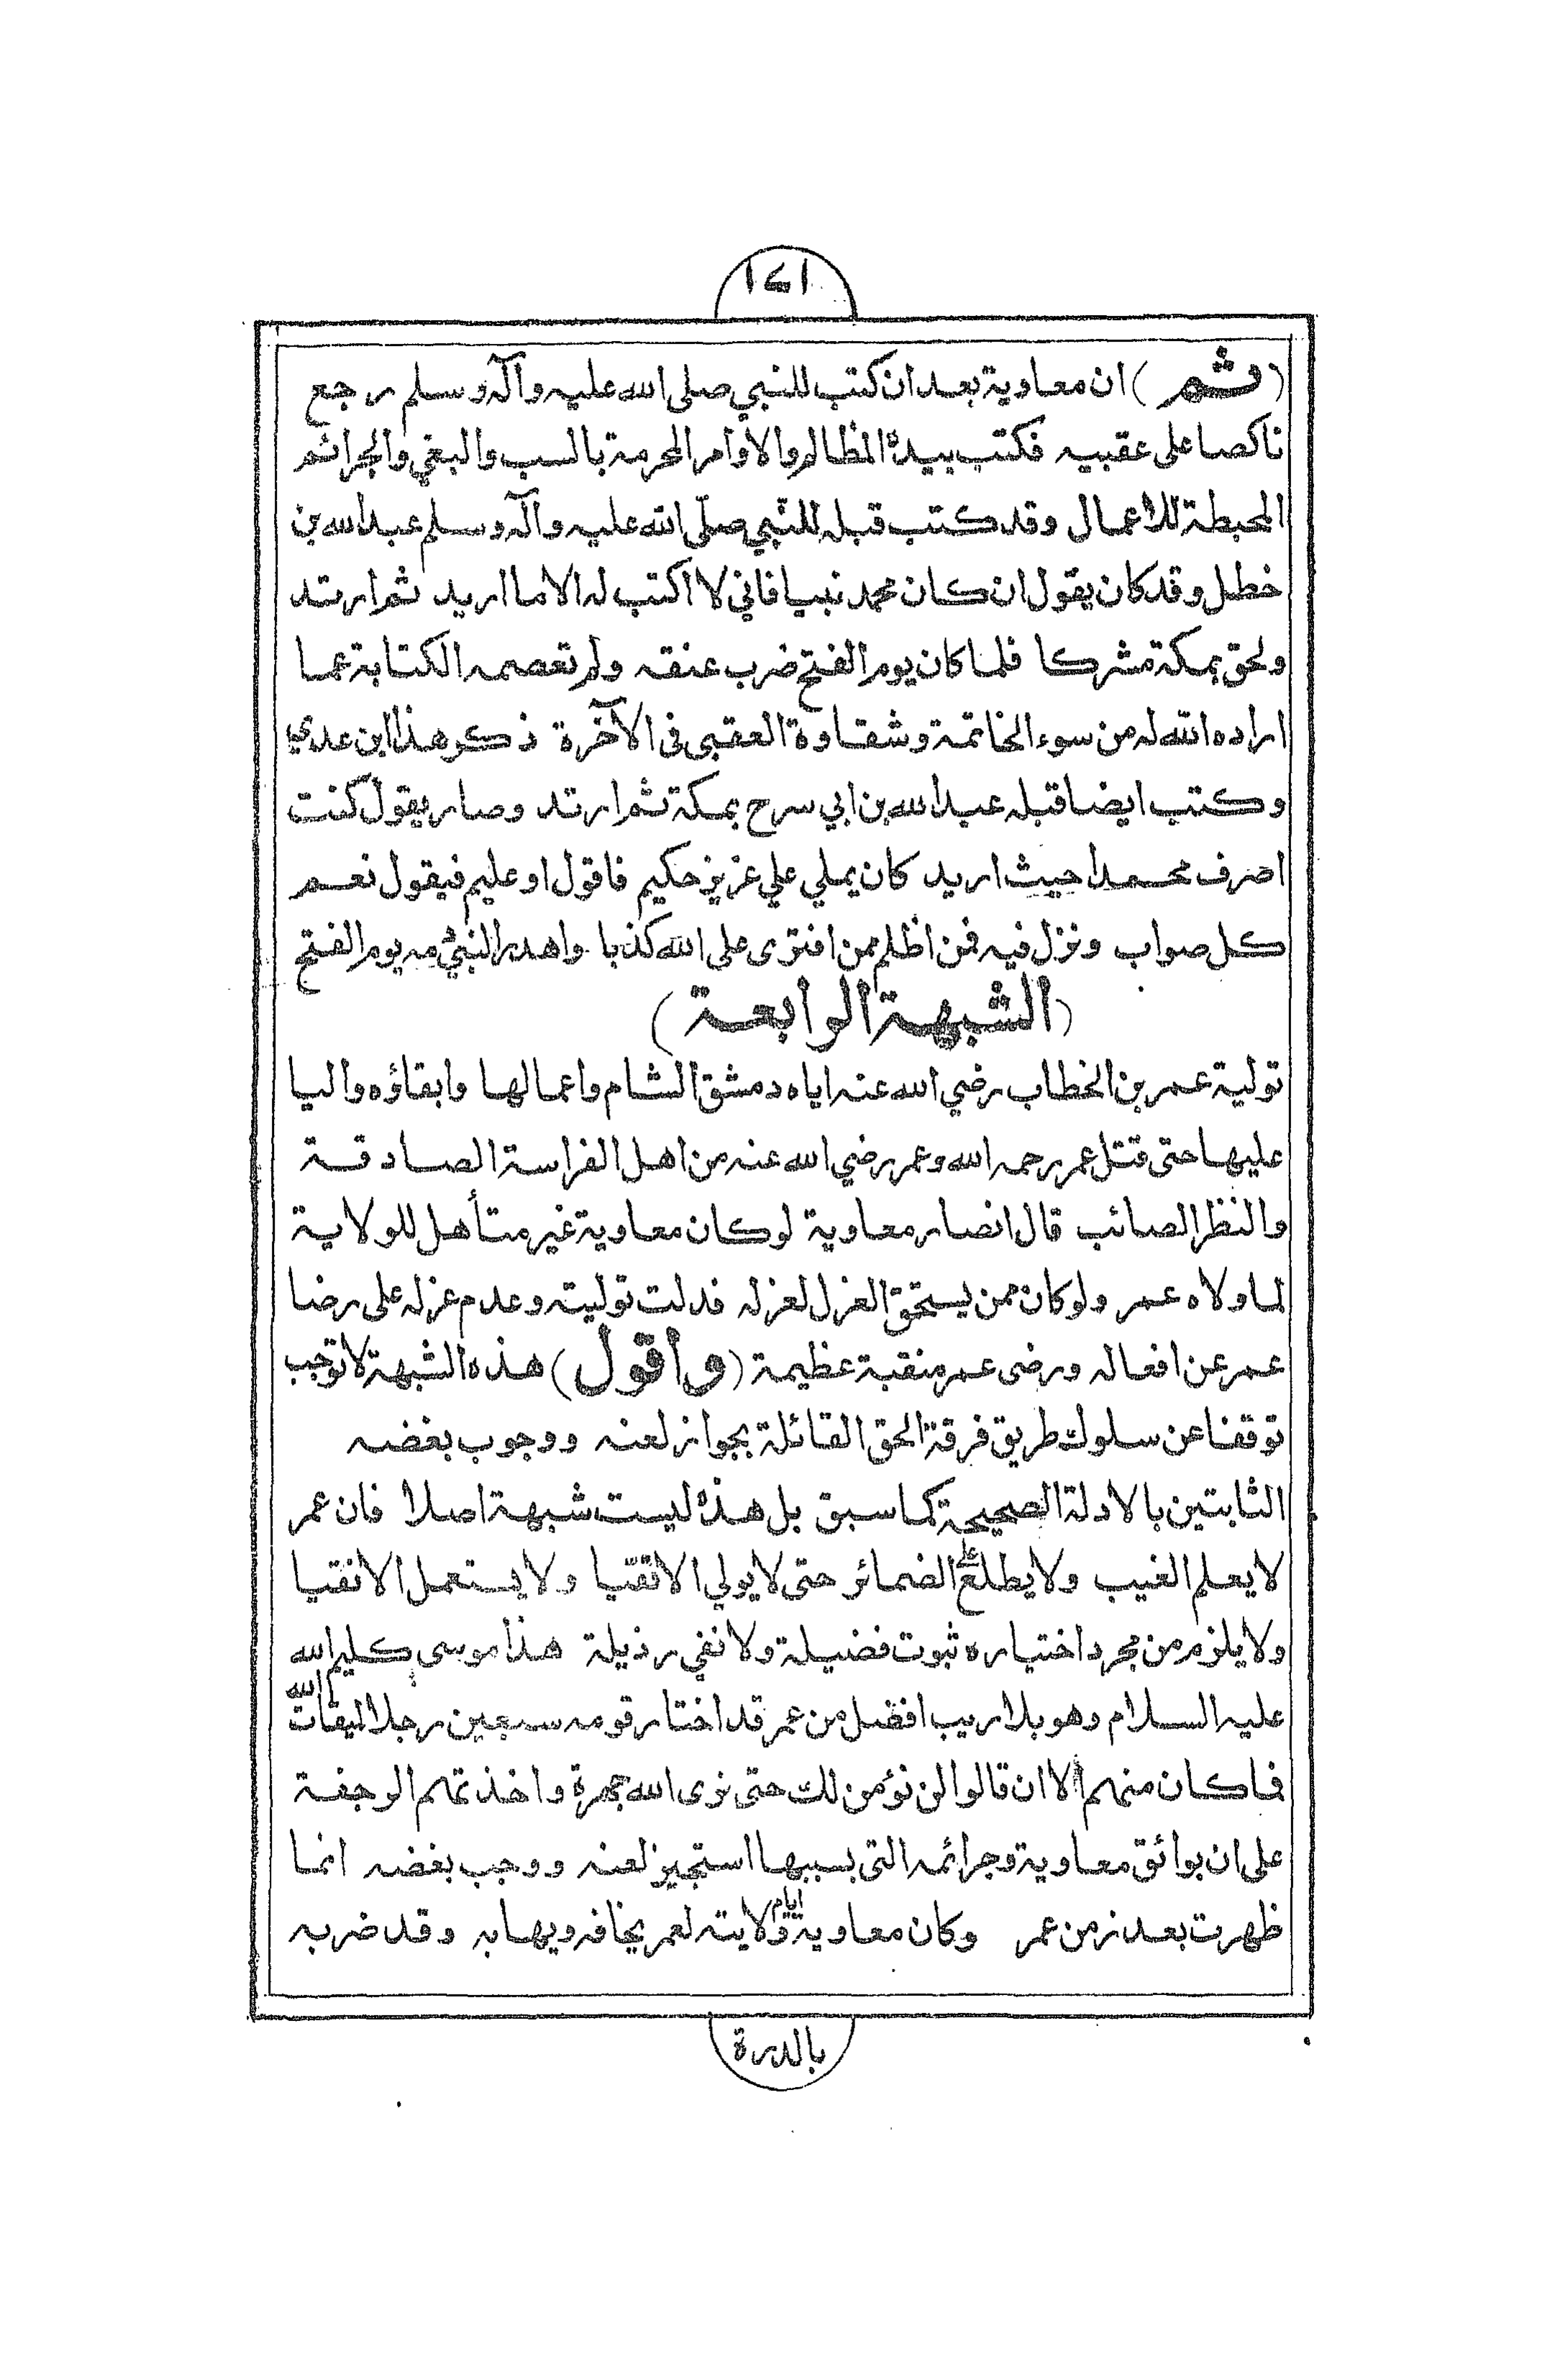 ١٢١
(ثم) ان معاوية بعد ان كتب للنبي صلى الله عليه وآله وسلم رجع
ناكصا على عقبيه فكتب بيده المظالم والاوامر المحرمة بالسب والبغي والجرائم
المحبطة للاعمال وقد كتب قبله للنّبي صلّى الله عليه وآله وسلم عبد الله بن
خطل وقد كان يقول ان كان محمد نبيا فاني لا اكتب له الا ما اريد ثم ارتد
ولحق بمكة مشركا فلما كان يوم الفتح ضرب عنقه ولم تعصمه الكتابة عما
اراده الله له من سوء الخاتمة وشقاوة العقبى فى الآخرة ذكر هذا ابن عدي
وكتب ايضا قبله عبد الله بن ابي سرح بمكة ثم ارتد وصار يقول كنت
اصرف محمدا حيث اريد كان يملي علي عزيز حكيم فاقول او عليم فيقول نعم
كل صواب ونزل فيه فمن اظلم ممن افترى على الله كذبا واهدر النبي دمه يوم الفتح
(الشبهة الرابعة)
تولية عمر بن الخطاب رضي الله عنه اياه دمشق الشام واعمالها وابقاؤه واليا
عليها حتى قتل عمر رحمه الله وعمر رضي الله عنه من اهل الفراسة الصادقة
والنظر الصائب قال انصار معاوية لو كان معاوية غير متأهل للولاية
لما ولاه عمر ولو كان ممن يستحق العزل لعزله فدلت توليته وعدم عزله على رضا
عمر عن افعاله ورضى عمر منقبة عظيمة (وأقول) هذه الشبهة لا توجب
توقفنا عن سلوك طريق فرقة الحق القائلة بجواز لعنه ووجوب بغضه
الثابتين بالادلة الصحيحة كما سبق بل هذه ليست شبهة اصلا فان عمر
لا يعلم الغيب ولا يطلع على الضمائر حتى لا يولي الا تقيّا ولا يستعمل الا نقيا
ولا يلزم من مجرد اختياره ثبوت فضيلة ولا نفي رذيلة هذا موسى كليم الله
عليه السلام وهو بلا ريب افضل من عمر قد اختار قومه سبعين رجلا لميقات الله
فما كان منهم الا ان قالوا لن نؤمن لك حتى نرى الله جهرة واخذتهم الرجفة
على ان بوائق معاوية وجرائمه التي بسببها استجيز لعنه ووجب بغضه انما
ظهرت بعد زمن عمر وكان معاوية ايام ولايته لعمر يخافه ويهابه وقد ضربه
بالدرة